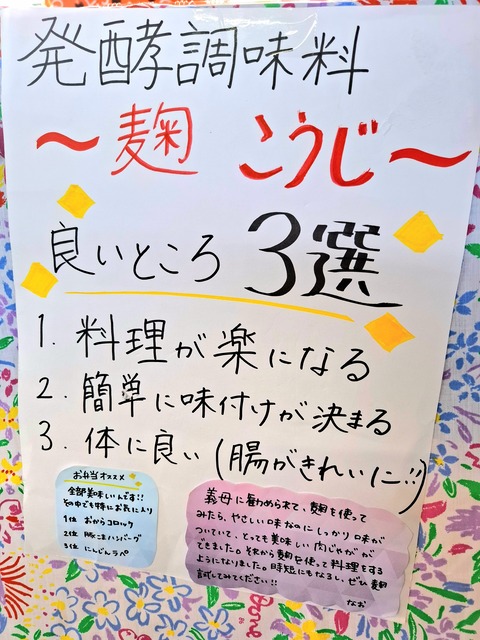 発酵調味料
〜麹 こうじ〜
良いところ 3選
1. 料理が楽になる
2. 簡単に味付けが決まる
3. 体に良い(腸がきれいに!!)
お弁当オススメ
全部美味しいんです!!
その中でも特にお気に入り
1位 おからコロッケ
2位 豚こまハンバーグ
3位 にんじんラペ
義母に勧められて、麹を使って
みたら、やさしい味なのにしっかり味が
ついていて、とっても美味しい肉じゃがが
できました。それから麹を使って料理をする
ようになりました。時短にもなるし、ぜひ麹
試してみてください!!
なお